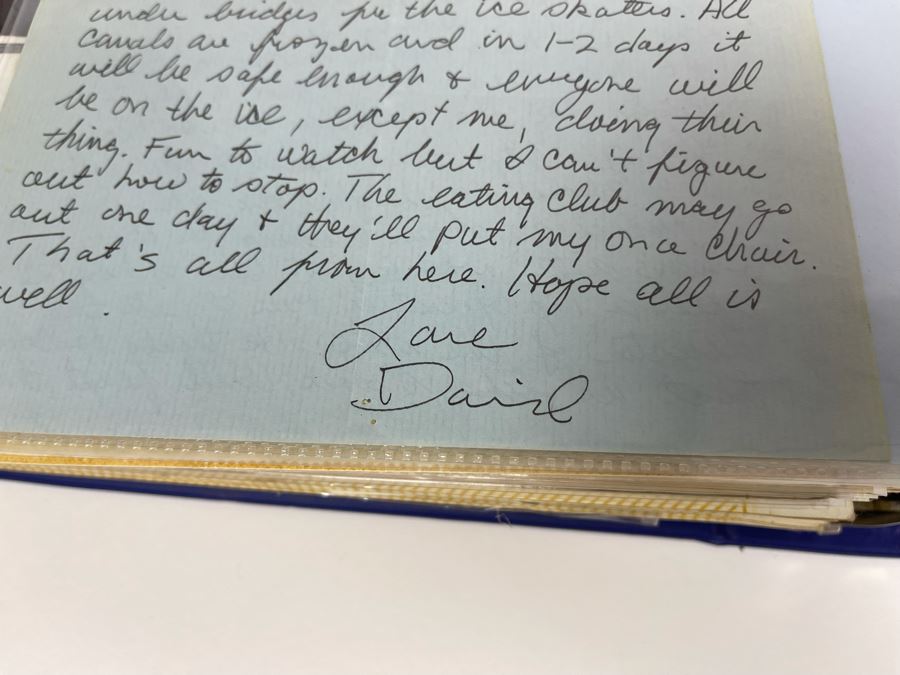 under bridges for the ice skaters. All
canals are frozen and in 1-2 days it
will be safe enough & everyone will
be on the ice, except me, doing their
thing. Fun to watch but I can't figure
out how to stop. The eating club may go
out one day & they'll put my on a chair.
That's all from here. Hope all is
well.
Love
David